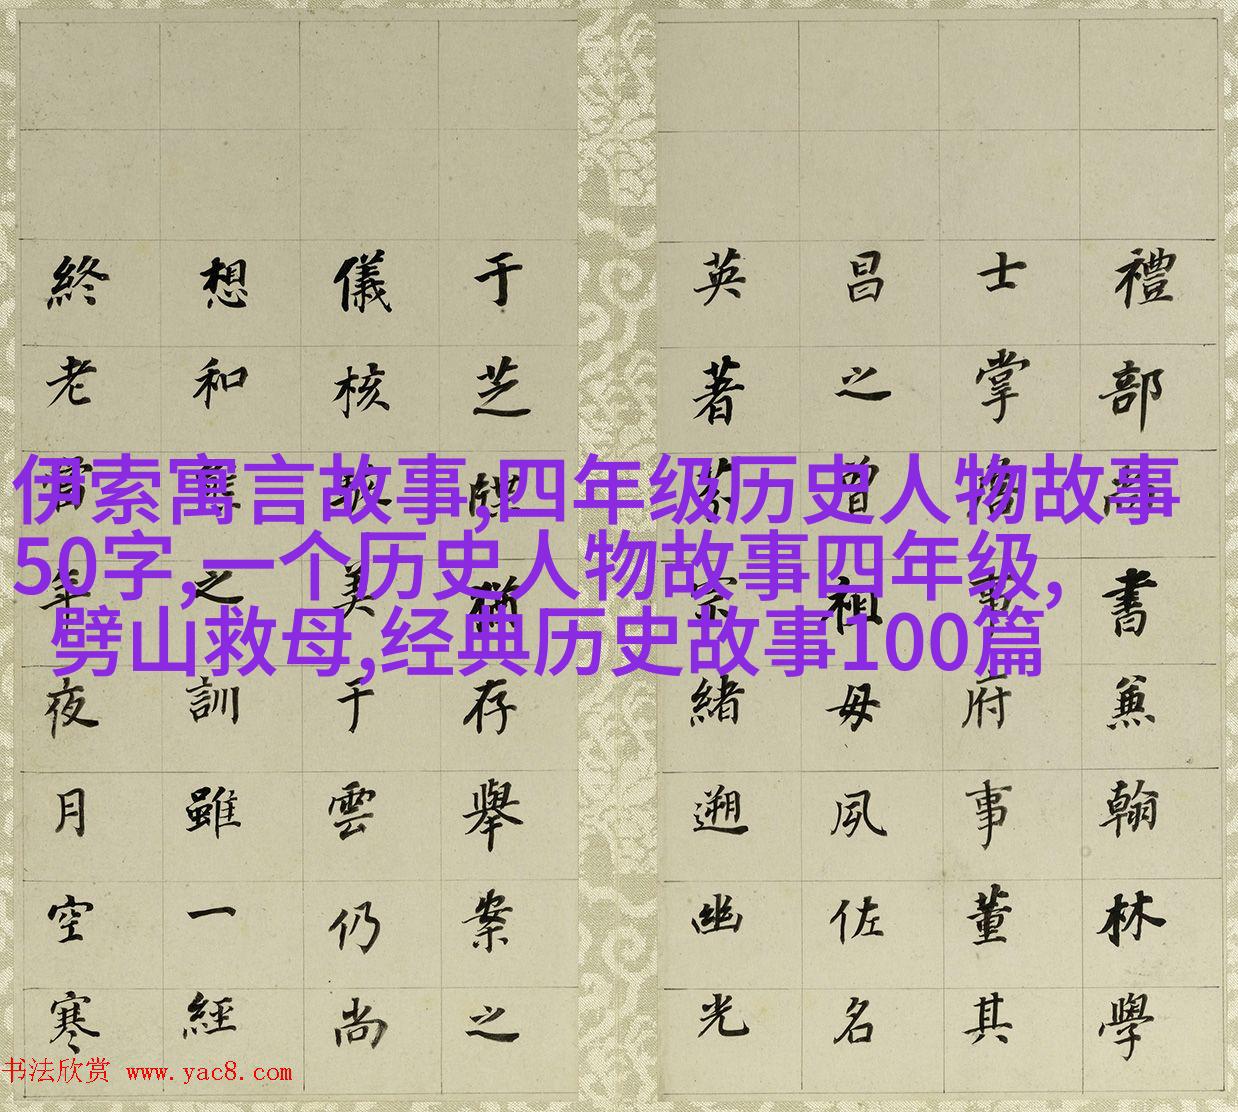 伊索寓言故事,四年级历史人物故事
50字,一个历史人物故事四年级,
劈山救母,经典历史故事100篇
禮部尚書兼翰林學
士掌詹事府事董其
昌之曾祖母夙佐名
英著宗緒遡幽光
于芝牒猶存舉案之
儀核美于雲仍尚
想和熊之訓雖一經
終老當年夜月空寒
书法欣赏 www.yac8.com